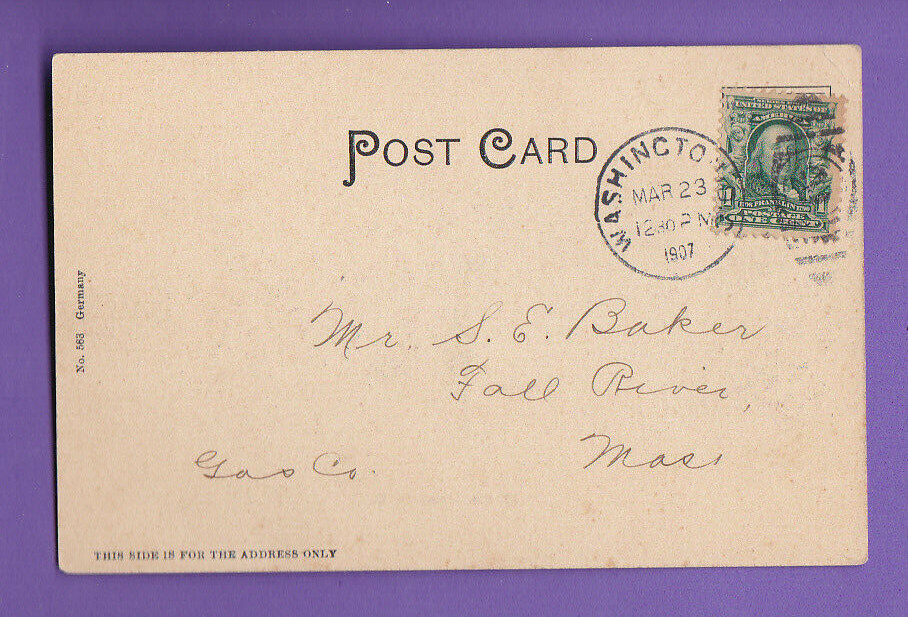 POST CARD
WASHINGTO
MAR 23
12 30 P M
1907
SERIES 1902
UNITED STATES OF
AMERICA
1706 FRANKLIN 1790
POSTAGE
1 ONE CENT 1
Mr. S. E. Baker
Fall River,
Mass
Gas Co.
No. 583 Germany
THIS SIDE IS FOR THE ADDRESS ONLY